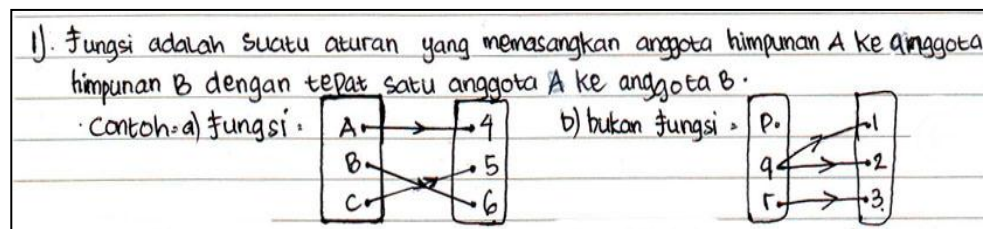 1). Fungsi adalah suatu aturan yang memasangkan anggota himpunan A ke anggota
himpunan B dengan tepat satu anggota A ke anggota B.
· Contoh: a) fungsi : b) bukan fungsi :
A 4 P 1
B 5 q 2
C 6 r 3